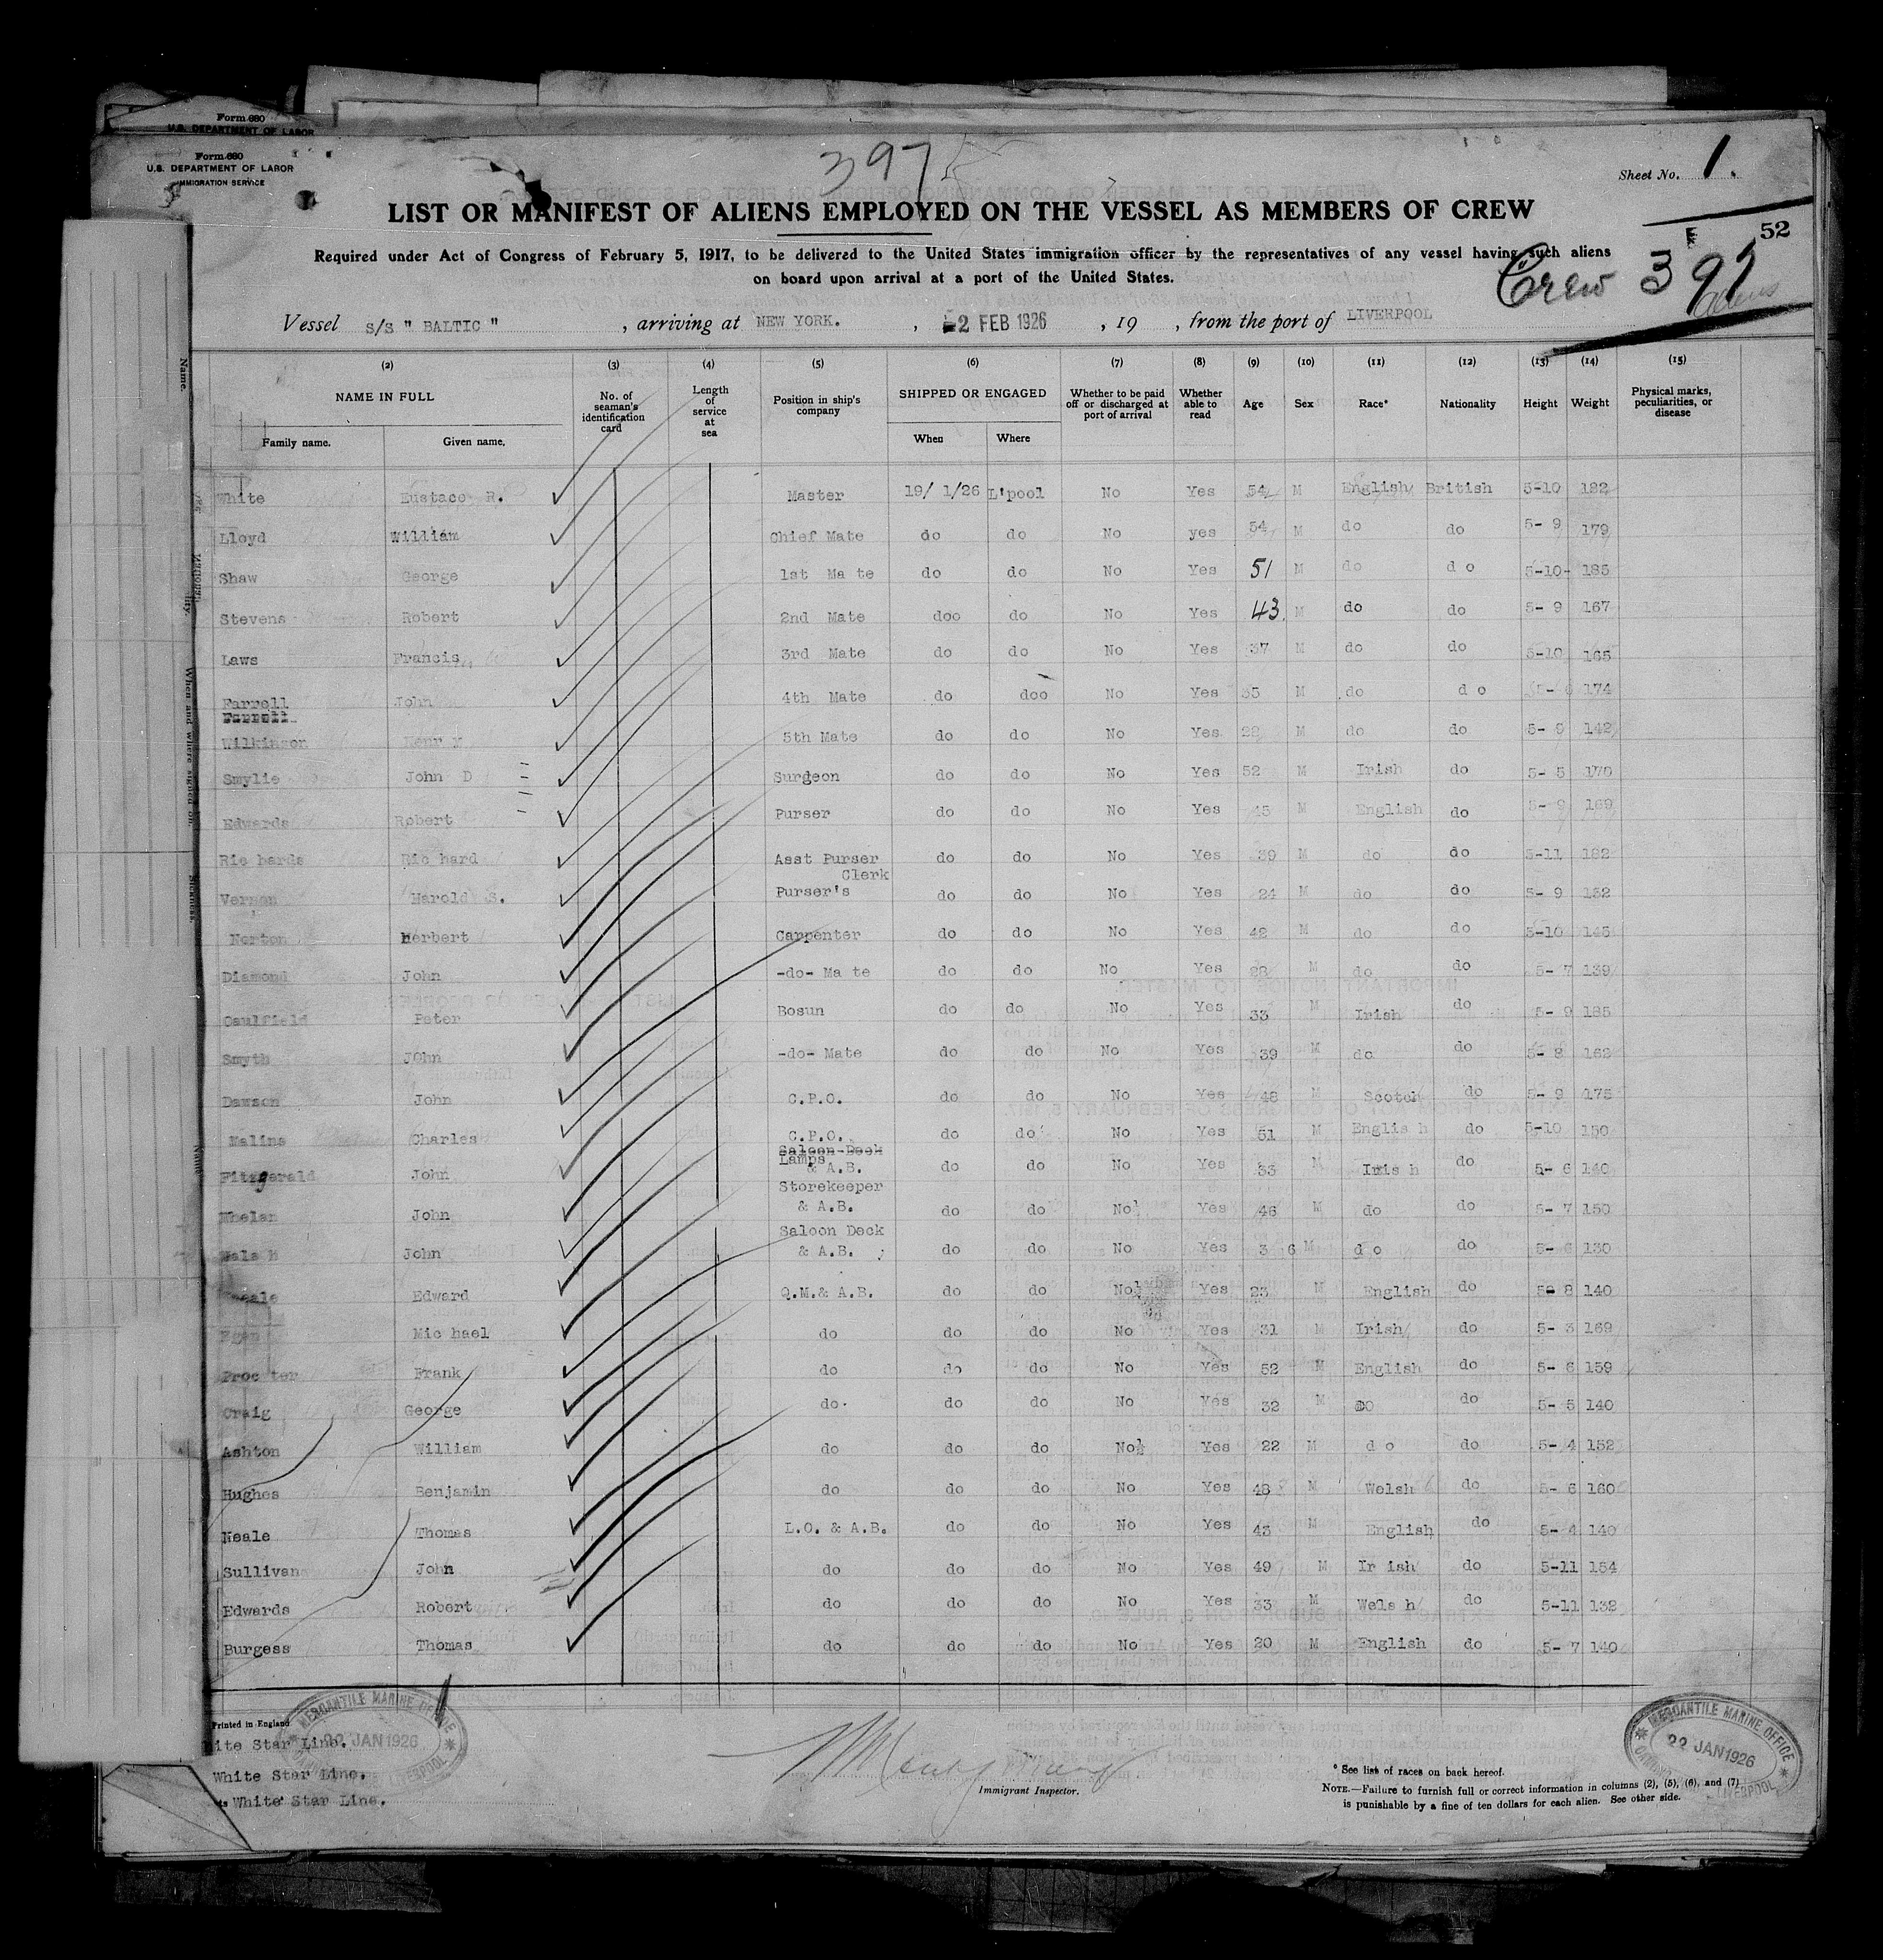 Form 680
U.S. DEPARTMENT OF LABOR
Form 680
U.S. DEPARTMENT OF LABOR
IMMIGRATION SERVICE
397
Sheet No. 1.
LIST OR MANIFEST OF ALIENS EMPLOYED ON THE VESSEL AS MEMBERS OF CREW
52
Required under Act of Congress of February 5, 1917, to be delivered to the United States immigration officer by the representatives of any vessel having such aliens
on board upon arrival at a port of the United States.
Crew 397
Vessel S/S " BALTIC " , arriving at NEW YORK. , 2 FEB 1926 , 19 , from the port of LIVERPOOL
(2) (3) (4) (5) (6) (7) (8) (9) (10) (11) (12) (13) (14) (15)
NAME IN FULL No. of seaman's identification card Length of service at sea Position in ship's company SHIPPED OR ENGAGED Whether to be paid off or discharged at port of arrival Whether able to read Age Sex Race* Nationality Height Weight Physical marks, peculiarities, or disease
Family name. Given name. When Where
White Eustace R. Master 19/ 1/26 L'pool No Yes 54 M English British 5-10 182
Lloyd William Chief Mate do do No yes 54 M do do 5- 9 179
Shaw George 1st Ma te do do No Yes 51 M do d o 5-10- 185
Stevens Robert 2nd Mate doo do No Yes 43 M do do 5- 9 167
Laws Francis 3rd Mate do do No Yes 37 M do do 5-10 165
Farrell John 4th Mate do doo No Yes 35 M do d o 174
Farrell
Wilkinson Henr y 5th Mate do do No Yes 28 M do do 5- 9 142
Smylie John D Surgeon do do No Yes 52 M Irish do 5- 5 170
Edwards Robert Purser do do No Yes 45 M English do 5- 9 169
Ric hards Ric hard Asst Purser do do No Yes 39 M do do 5-11 182
Clerk
Vernon Harold S. Purser's do do No Yes 24 M do do 5- 9 152
Norton Herbert Carpenter do do No Yes 42 M do do 5-10 145
Diamond John -do- Ma te do do No Yes 28 M do do 5- 7 139
Caulfield Peter Bosun do do No Yes 33 M Irish do 5- 9 185
Smyth JOhn -do- Mate do do No Yes 39 M do do 5- 8 162
Dawson John C.P.O. do do No Yes 48 M Scotch do 5- 9 175
Malins Charles C.P.O. do do No Yes 51 M Englis h do 5-10 150
Saloon Deck
Fitzgerald John Lamps & A.B. do do No Yes 33 M Iris h do 5- 6 140
Storekeeper
Whelan John & A.B. do do No Yes 46 M do do 5- 7 150
Saloon Deck
Wals h John & A.B. do do No Yes 3 6 M d o do 5- 6 130
Edward Q.M.& A.B. do do No Yes 23 M English do 5- 8 140
Egan Mic hael do do do No Yes 31 M Irish do 5- 3 169
Proc ter Frank do do do No Yes 52 M English do 5- 6 159
Craig George do. do do No Yes 32 M DO do 5- 5 140
Ashton William do do do No Yes 22 M d o do 5- 4 152
Hughes Benjamin do do do No Yes 48 M Welsh do 5- 6 160
Neale Thomas L.O. & A.B. do do No Yes 43 M English do 5- 4 140
Sullivan John do do do No Yes 49 M Ir ish do 5-11 154
Edwards Robert do do do No Yes 33 M Wels h do 5-11 132
Burgess Thomas do do do No Yes 20 M English do 5- 7 140
Printed in England
MERCANTILE MARINE OFFICE
22 JAN 1926
LIVERPOOL
ite Star Line.
White Star Line.
White Star Line.
Immigrant Inspector.
* See list of races on back hereof.
NOTE.—Failure to furnish full or correct information in columns (2), (5), (6), and (7)
is punishable by a fine of ten dollars for each alien. See other side.
MERCANTILE MARINE OFFICE
22 JAN 1926
LIVERPOOL
Name.
Nationality.
When and where signed on.
Sickness.
Name